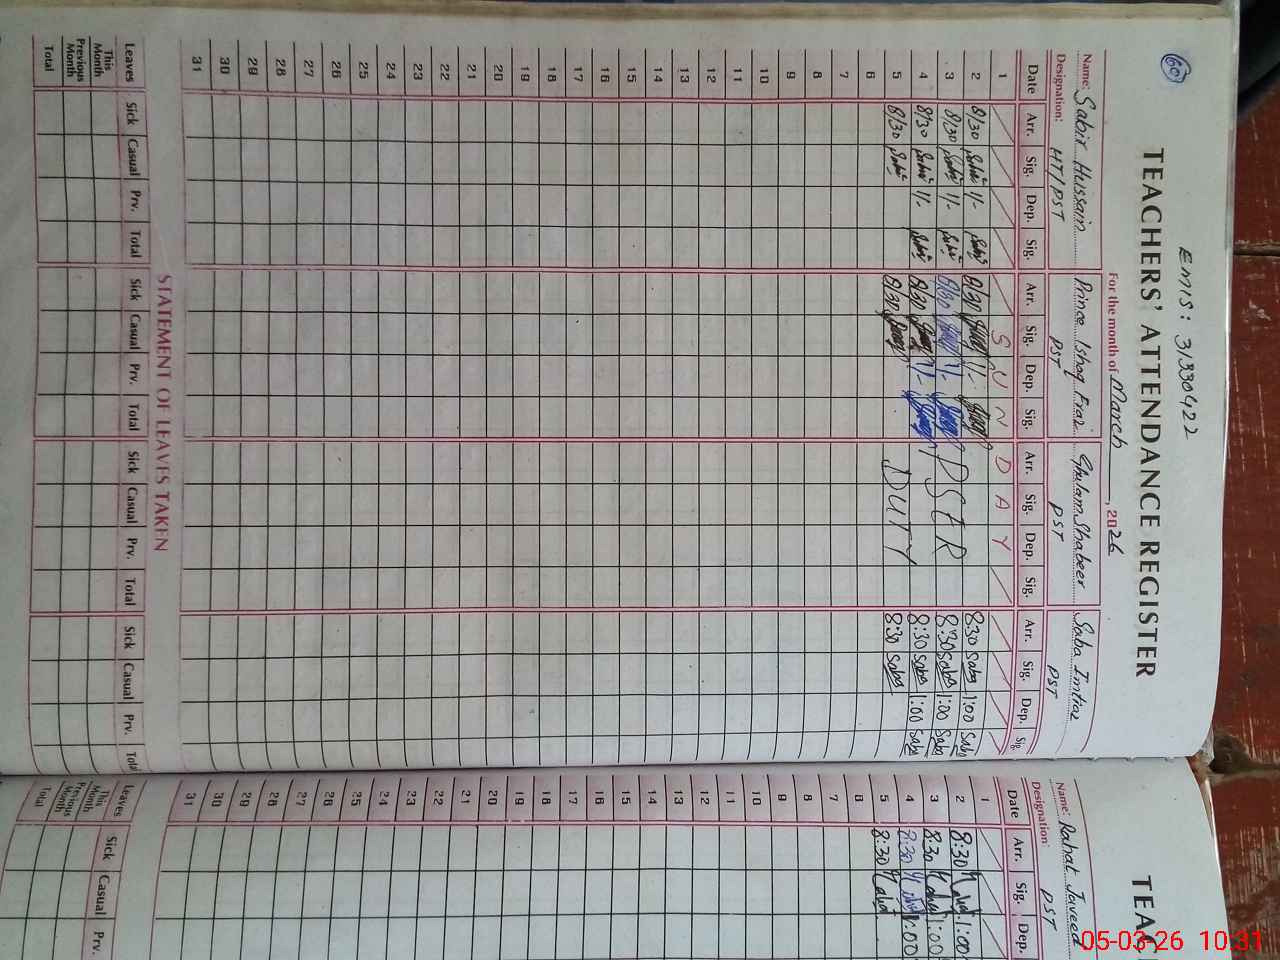 60
EMIS: 31330422
TEACHERS' ATTENDANCE REGISTER
For the month of March, 2026
Name: Sabir Hussain Prince Ishaq Fraz Ghulam Shabeer Saba Imtiaz
Designation: HT/PST PST PST PST
Date Arr. Sig. Dep. Sig. Arr. Sig. Dep. Sig. Arr. Sig. Dep. Sig. Arr. Sig. Dep. Sig.
1 S U N D A Y
2 8/30 Sabir 1/- Sabir 8/30 1/- 8:30 Saba 1:00 Saba
3 8/30 Sabir 1/- Sabir 8/30 1/- PSER 8:30 Saba 1:00 Saba
4 8/30 Sabir 1/- Sabir 8/30 1/- 8:30 Saba 1:00 Saba
5 8/30 Sabir 8/30 DUTY 8:30 Saba
6
7
8
9
10
11
12
13
14
15
16
17
18
19
20
21
22
23
24
25
26
27
28
29
30
31
STATEMENT OF LEAVES TAKEN
Leaves Sick Casual Prv. Total Sick Casual Prv. Total Sick Casual Prv. Total Sick Casual Prv. Total
This Month
Previous Month
Total
TEAC
Name: Rahat Javeed
Designation: PST
Date Arr. Sig. Dep.
1
2 8:30 1:00
3 8:30 1:00
4 8:30 1:00
5 8:30
6
7
8
9
10
11
12
13
14
15
16
17
18
19
20
21
22
23
24
25
26
27
28
29
30
31
Leaves Sick Casual Prv.
This Month
Previous Month
Total
05-03-26 10:31